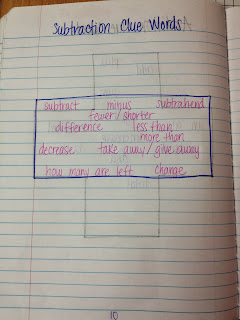 Subtraction Clue Words
subtract minus subtrahend
fewer/shorter
difference less than
more than
decrease take away/give away
how many are left change
10